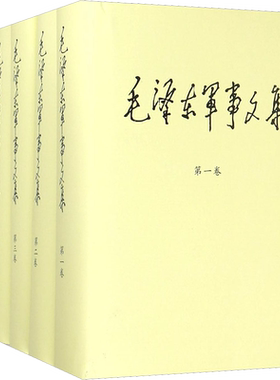 毛泽东军事文集
第一卷
毛泽东军事文集
第一卷
毛泽东军事文集
第二卷
毛泽东军事文集
第三卷